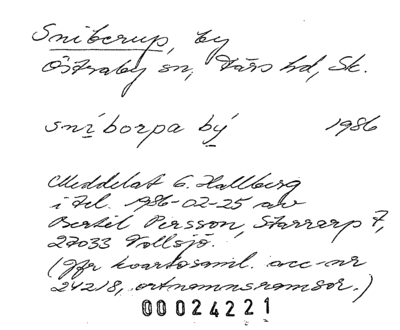 Sniberup, by
Östraby sn, Färs hd, Sk.
sníborpa bý 1986
Meddelat G. Hallberg
i tel. 1986-02-25 av
Bertil Persson, Starrarp 7,
27033 Vollsjö.
(Jfr kvartosaml. acc-nr
24218, ortnamnsramsor.)
00024221